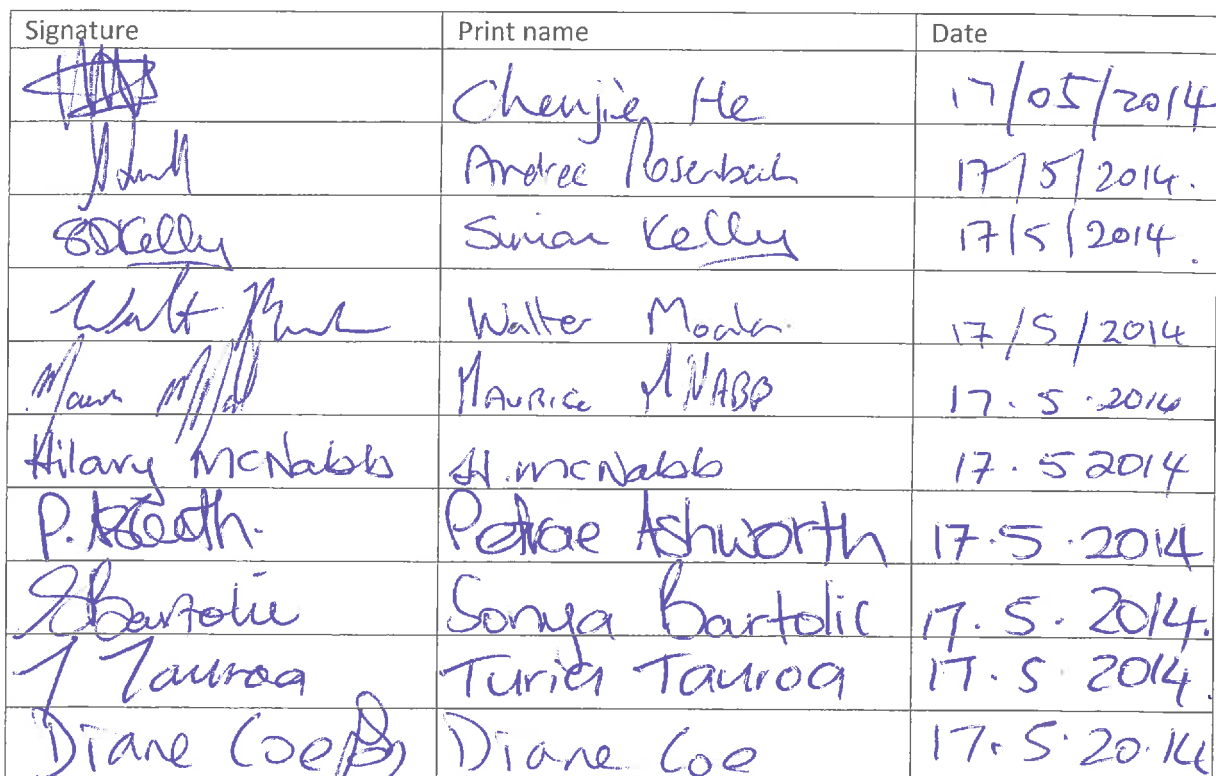 Signature Print name Date
Chenjie He 17/05/2014
Andree Rosenbach 17/5/2014.
SDKelly Simon Kelly 17/5/2014.
Walt Walter Moala 17/5/2014
Maurice McNABB 17.5.2014
Hilary McNabb H. McNabb 17.5 2014
P. Petrae Ashworth 17.5.2014
SBartolic Sonya Bartolic 17.5.2014.
T Tauroa Turia Tauroa 17.5 2014.
Diane Coe Diane Coe 17.5.20.14